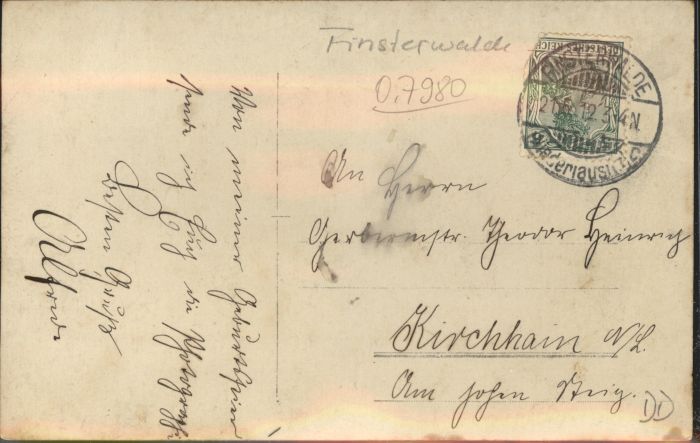 Finsterwalde
0,7980
DEUTSCHES REICH
FINSTERWALDE
21.6.12 3-4N.
(Niederlausitz)
An Herrn
Gerbermstr. Theodor Heinrich
Kirchhain N/L.
Am hohen Steig.
DD
Von meiner Geburtsfeier
sende ich Euch die
besten Grüße